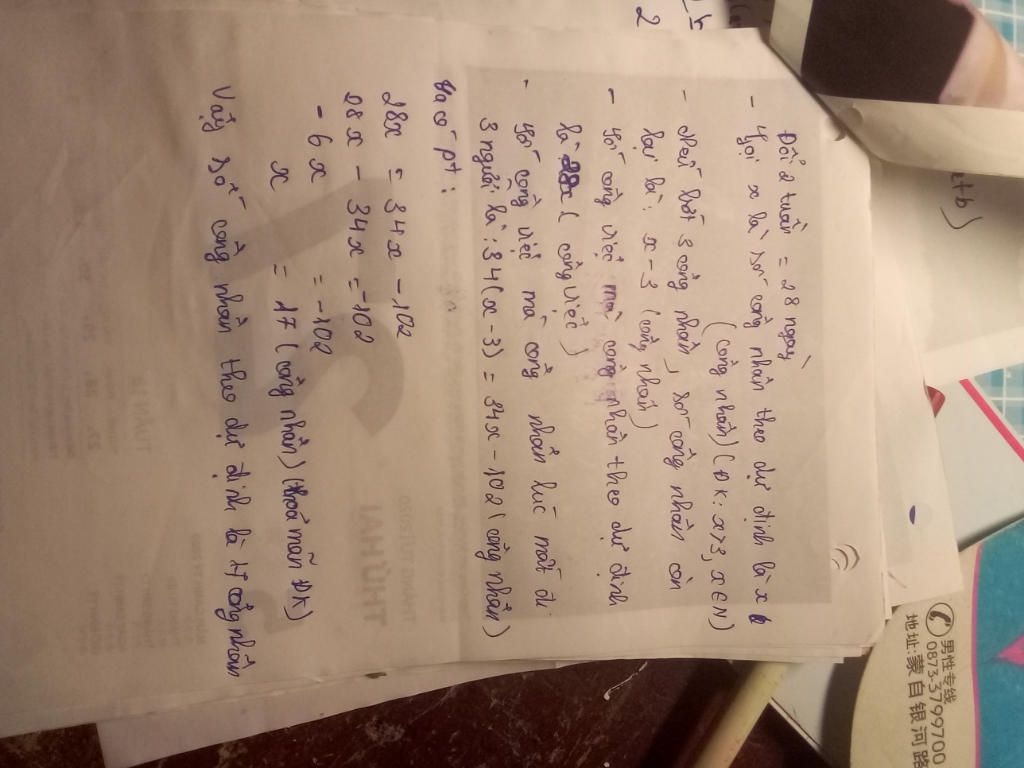 Đổi 2 tuần = 28 ngày
- Gọi x là số công nhân theo dự định là x
(công nhân) (ĐK: x>3, x ∈ N)
- Nếu bớt 3 công nhân, số công nhân còn
lại là: x - 3 (công nhân)
- Số công việc mà công nhân theo dự định
là 28x (công việc)
- Số công việc mà công nhân lúc mất đi
3 người là: 34(x - 3) = 34x - 102 (công nhân)
Ta có pt:
28x = 34x - 102
28x - 34x = -102
- 6x = -102
x = 17 (công nhân) (thoả mãn ĐK)
Vậy số công nhân theo dự định là 17 công nhân
2
et b)
男性专线
0873-3799700
地址:蒙自银河路